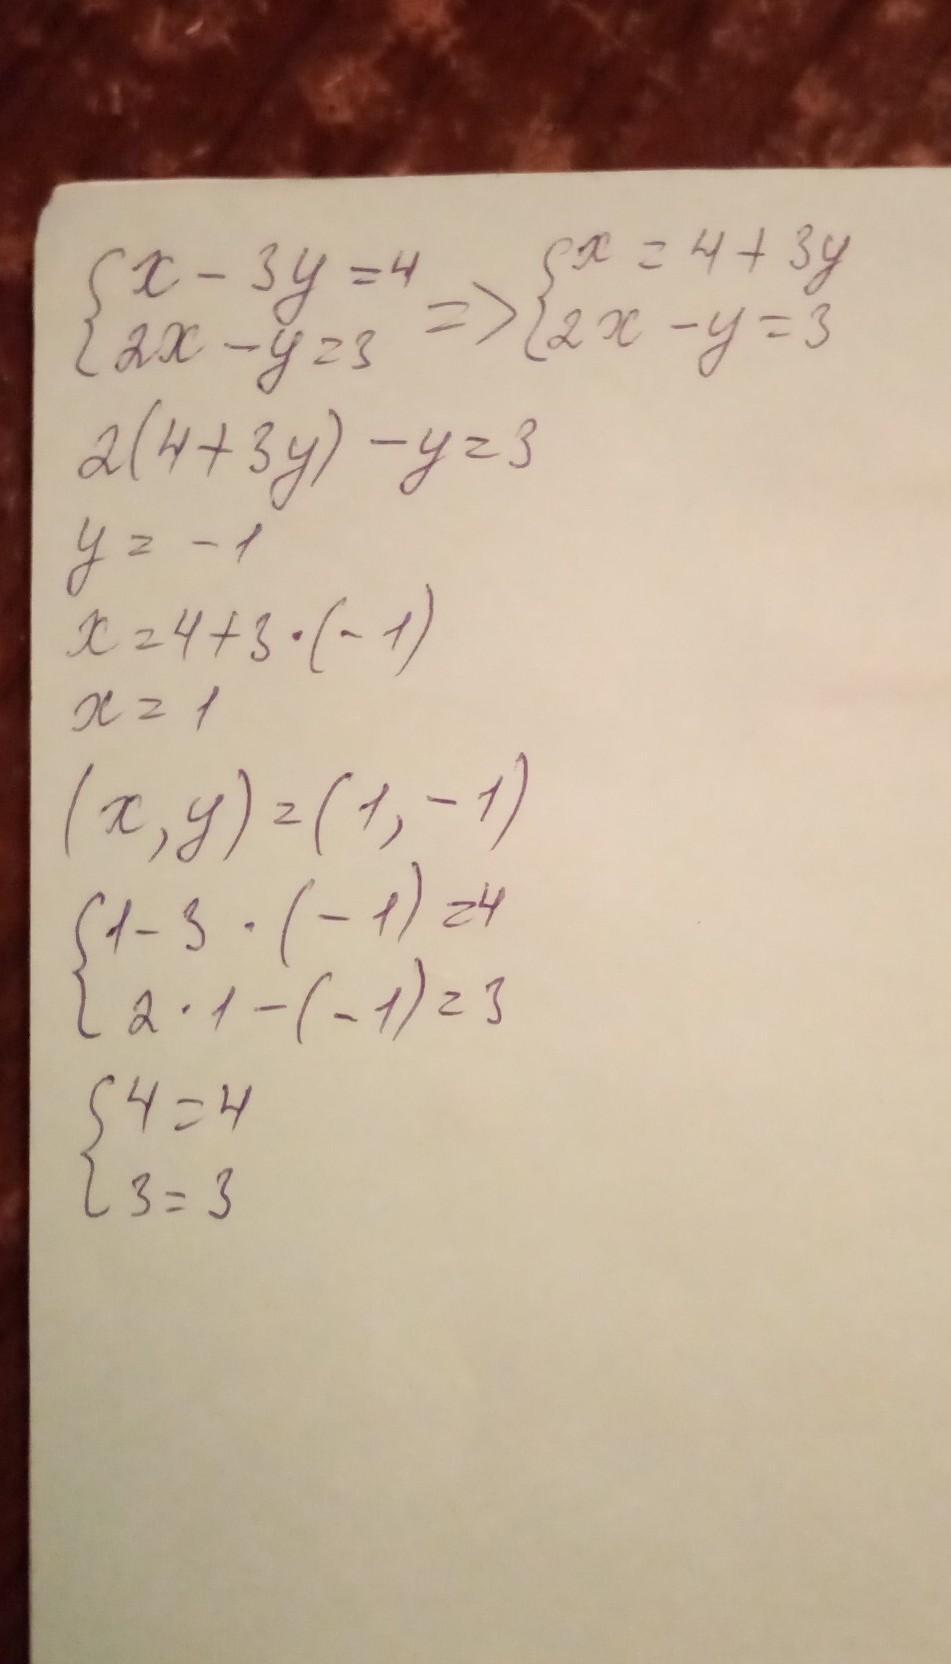 {x - 3y = 4 => {x = 4 + 3y
{2x - y = 3 {2x - y = 3
2(4 + 3y) - y = 3
y = -1
x = 4 + 3 · (-1)
x = 1
(x, y) = (1, -1)
{1 - 3 · (-1) = 4
{2 · 1 - (-1) = 3
{4 = 4
{3 = 3